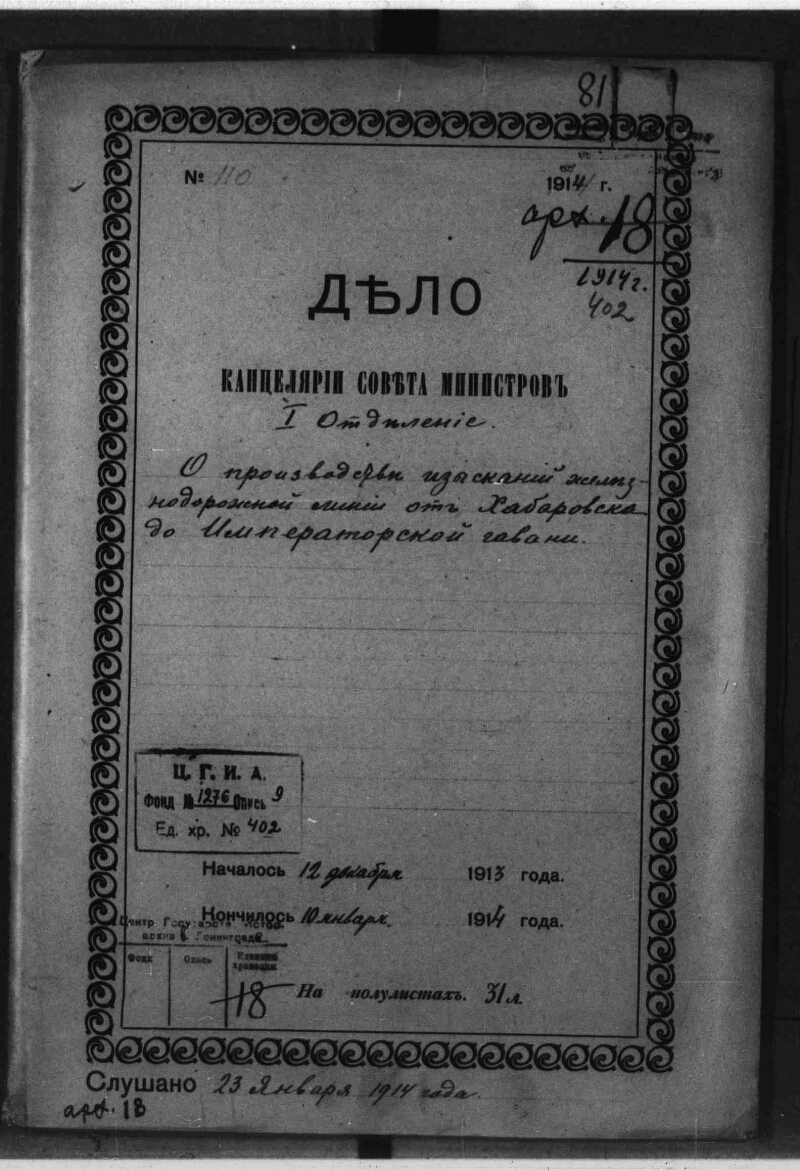 81
№ 110
1914 г.
арх. 18
1914 г.
402
ДѢЛО
КАНЦЕЛЯРІИ СОВѢТА МИНИСТРОВЪ
I Отдѣленіе.
О производствѣ изысканій желѣз-
нодорожной линіи отъ Хабаровска
до Императорской гавани.
Ц. Г. И. А.
Фонд № 1276 Опись 9
Ед. хр. № 402
Началось 12 декабря 1913 года.
Кончилось 10 января 1914 года.
Центр Государств. Истор.
архив в Ленинграде
Фонд Опись Единица хранения
18
На полулистахъ. 31 л.
Слушано 23 Января 1914 года.
арх. 18